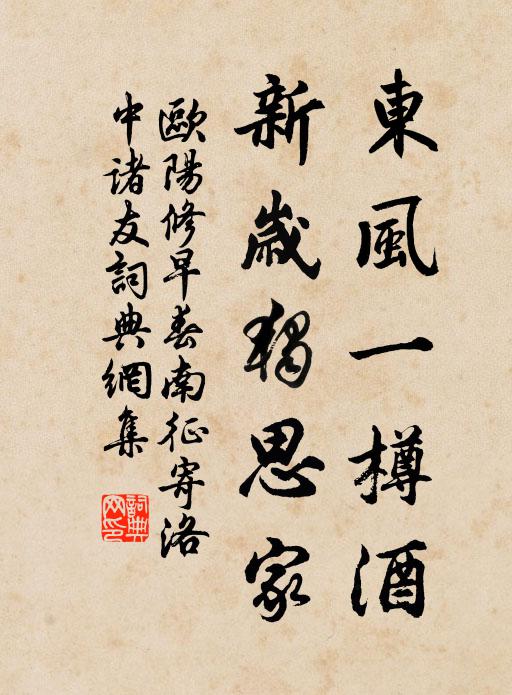 東風一樽酒
新歲獨思家
歐陽修早春南征寄洛
中諸友詞典網集
詞典
网印